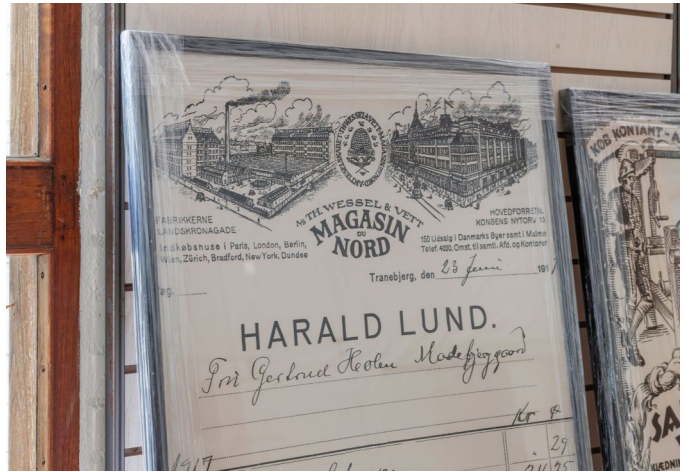 FABRIKKERNE
LANDSKRONAGADE
Indkøbshuse i Paris, London, Berlin,
Wien, Zürich, Bradford, New York, Dundee
TH. WESSEL & VETT
MAGASIN
DU
NORD
HOVEDFORRETN.
KONGENS NYTORV
150 Udsalg i Danmarks Byer samt i Malmø
Telef. 4000. Omst. til samtl. Afd. og Kontorer
Tranebjerg, den 23 Juni 191
HARALD LUND.
Fru Gertrud Holm
Kr
1917
29
KØB KONTANT - A
SA
KLÆDNIN